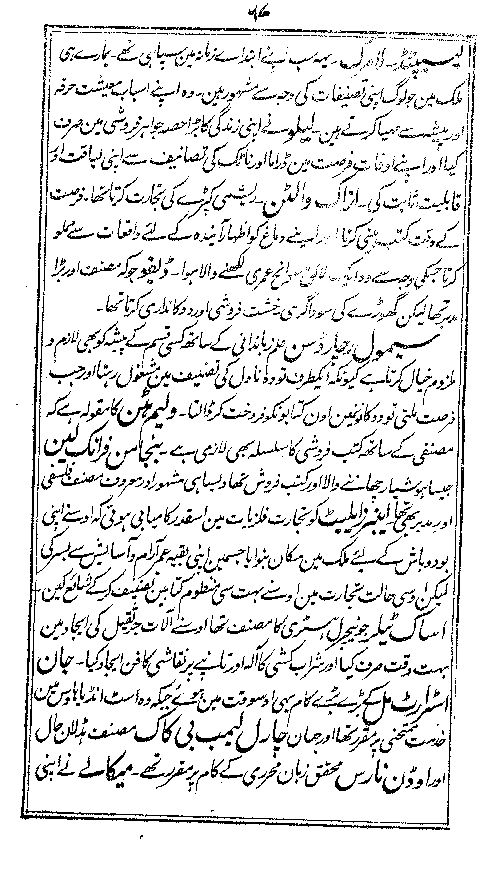 ۵۶
یہ سب اپنے ابتداے زمانہ مین سپاہی تھے۔ ہمارے ہی
ملک مین جو لوگ اپنی تصنیفات کی وجہ سے مشہور ہین۔ وہ اپنے اسباب معیشت حرفہ
اور پیشہ سے مہیا کرتے ہین۔ لیلو نے اپنی زندگی کا بڑا حصہ جواہر فروشی مین صرف
کیا اور اپنے اوقات فرصت مین ڈراما اور ناٹک کی تصانیف سے اپنی لیاقت اور
قابلیت ثابت کی۔ ایزاک والٹن۔ ریشمی کپڑے کی تجارت کرتا تھا۔ فرصت
کے وقت کتب بینی کرتا اور اپنے دماغ کو اظہار آیندہ کے لئے واقعات سے مملو
کرتا جسکی وجہ سے وہ ایک لائق سوانح عمری لکھنے والا ہوا۔ ڈیفو جو کہ مصنف اور بڑا
مدبر تھا لیکن گھوڑے کی سوداگری خشت فروشی اور دوکانداری کرتا تھا۔
سیموِل رچارڈسن علم زباندانی کے ساتھ کسی قسم کے پیشہ کو بھی لازم و
ملزوم خیال کرتا ہے کیونکہ ایکطرف تو وہ ناول کی تصنیف مین مشغول رہتا اور جب
فرصت ملتی تو دوکانین اون کتابونکو فروخت کر ڈالتا۔ ولیم ہٹن کا مقولہ ہے کہ
مصنفی کے ساتھ کتب فروشی کا سلسلہ بھی لازمی ہے۔ بنجامن فرانک لین
جیسا ہوشیار چھاپنے والا اور کتب فروش تھا ویسا ہی مشہور اور معروف مصنف فلسفی
اور مدبر بھی تھا ایلیٹ کو تجارت فلزیات مین اسقدر کامیابی ہوئی کہ اوسنے اپنی
بود و باش کے لئے ملک مین مکان بنوایا جسمین اپنی بقیہ عمر آرام و آسایش سے بسر کی
لیکن اوسی حالت تجارت مین اوسنے بہت سی منظوم کتابین تصنیف کر کے شائع کین۔
اساک ٹیلر جو نیچرل ہسٹری کا مصنف تھا اوسنے آلات جرثقیل کی ایجاد مین
بہت وقت صرف کیا اور شراب کشی کا آلہ اور تانبے پر نقاشی کا فن ایجاد کیا۔ جان
اسٹورٹ مل کے بڑے بڑے کام بھی اوسوقت مین ہوئے جبکہ وہ ایسٹ انڈیا ہاوس مین
خدمت ممتحنی پر مقرر تھا اور جہان چارل لیمب پی کاک مصنف ہڈلان ہال
اور اوڈن نارس محقق زبان محرری کے کام پر مقرر تھے۔ میکالے نے اپنی